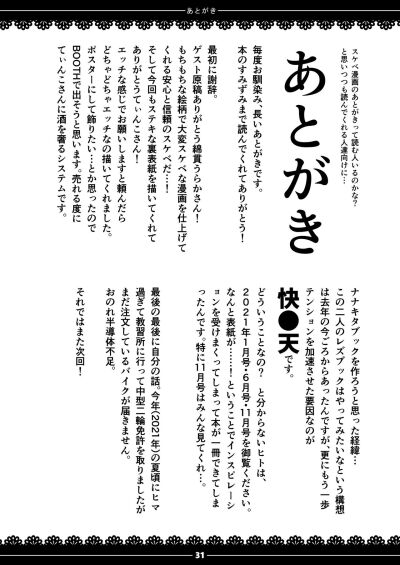 あとがき
スケベ漫画のあとがきって読む人いるのかな?
と思いつつも読んでくれる人達向けに…
あとがき
毎度お馴染み、長いあとがきです。
本のすみずみまで読んでくれてありがとう!
最初に謝辞。
ゲスト原稿ありがとう綿貫うらかさん!
もちもちな絵柄で大変スケベな漫画を仕上げて
くれる安心と信頼のスケベだ…!
そして今回もステキな裏表紙を描いてくれて
ありがとうてぃんこさん!
エッチな感じでお願いしますと頼んだら
どちゃどちゃエッチなの描いてくれました。
ポスターにして飾りたい…とか思ったので
BOOTHで出そうと思います。売れる度に
てぃんこさんに酒を奢るシステムです。
ナナキタブックを作ろうと思った経緯…
この二人のレズブックはやってみたいなという構想
は去年の今ごろからあったんですが、更にもう一歩
テンションを加速させた要因なのが
快●天です。
どういうことなの? と分からないヒトは、
2021年1月号・6月号・11月号を御覧ください。
なんと表紙が……!ということでインスピレーシ
ョンを受けまくってしまって本が一冊できてしま
ったんです。特に11月号はみんな見てくれ…。
最後の最後に自分の話。今年(2021年)の夏頃にヒマ
過ぎて教習所に行って中型二輪免許を取りましたが
まだ注文しているバイクが届きません。
おのれ半導体不足。
それではまた次回!
31